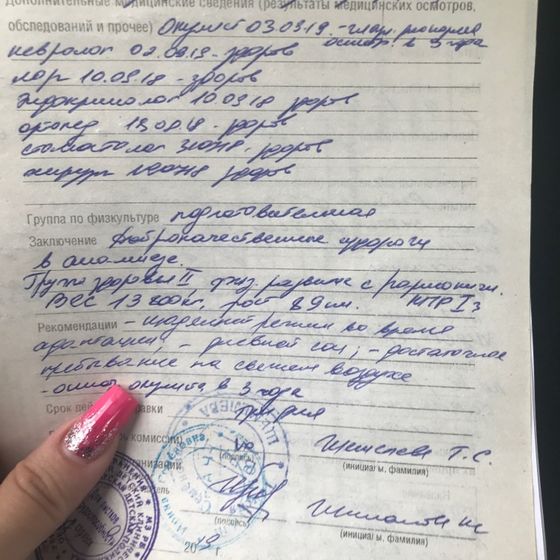 Дополнительные медицинские сведения (результаты медицинских осмотров,
обследований и прочее) Окулист 03.09.19.-
осмотр в 3 года
невролог 02.09.19 - здоров
лор 10.09.18 - здоров
эндокринолог 10.09.18 здоров
ортопед 13.09.18 - здоров
стоматолог - здоров
хирург здоров
Группа по физкультуре подготовительная
Заключение Доброкачественные судороги
в анамнезе.
Группа здоровья II физ развитие гармонич.
Вес 13 кг, рост 89 см. НПР I
Рекомендации - щадящий режим во время
адаптации; - дневной сон; - достаточное
пребывание на свежем воздухе
- осмотр окулиста в 3 года
Срок справки
комиссии)
(подпись) (инициалы, фамилия)
(подпись) (инициалы, фамилия)
2019 г.